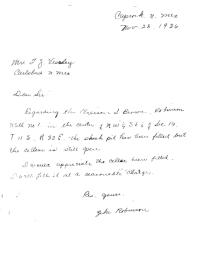 Caprock N. Mex
Nov 28. 1936
Mr. T Z
Carlsbad N. Mex
Dear Sir
Regarding the & Brown. Robinson
Well No 1 in the center of N W ¼ S E ¼ of Sec 14.
T 11 S. R 32 E. the slush pit has been filled but
the cellar is still open.
I would appreciate the cellar been filled.
I will fill it at a reasonable charge.
Robinson